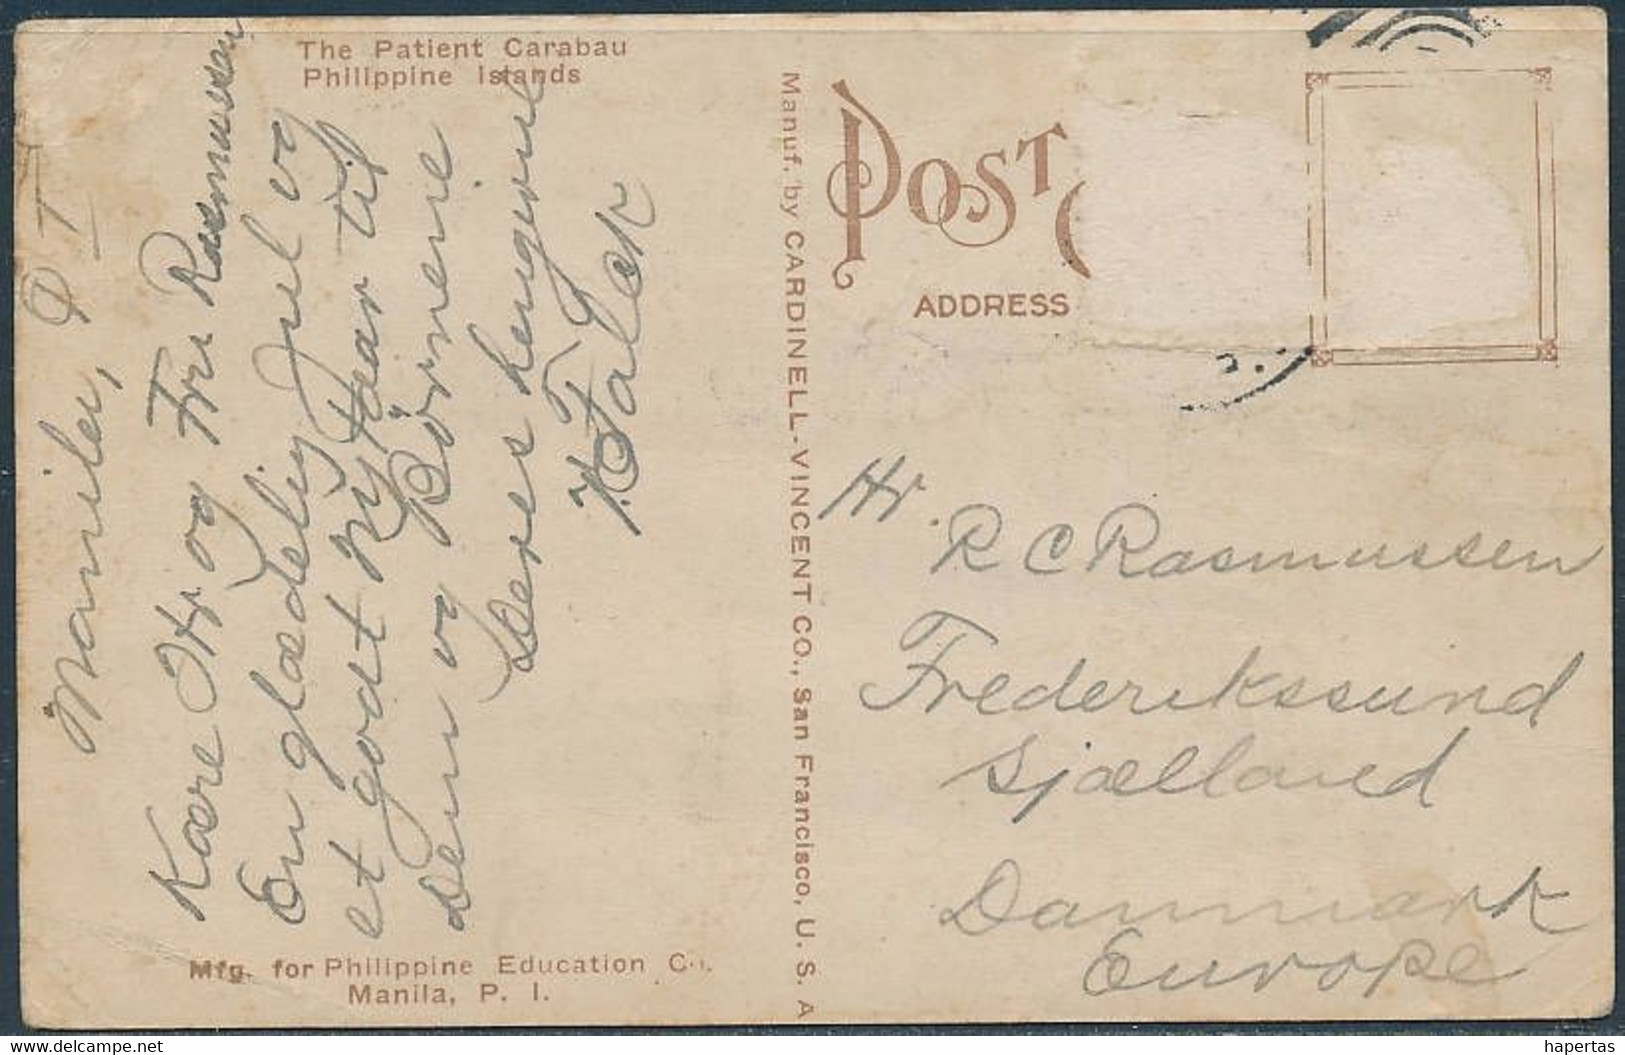 The Patient Carabau
Philippine Islands
Manila, P I
Kære Hr og Fru Rasmussen
En glædelig Jul og
et godt Nytaar til
Dem og Börnene
Deres hengivne
Falck
Mfg. for Philippine Education Co.
Manila, P. I.
Manuf. by CARDINELL-VINCENT CO., San Francisco, U. S. A
POST
ADDRESS
Hr.
R C Rasmussen
Frederikssund
Sjælland
Danmark
Europe
www.delcampe.net
hapertas